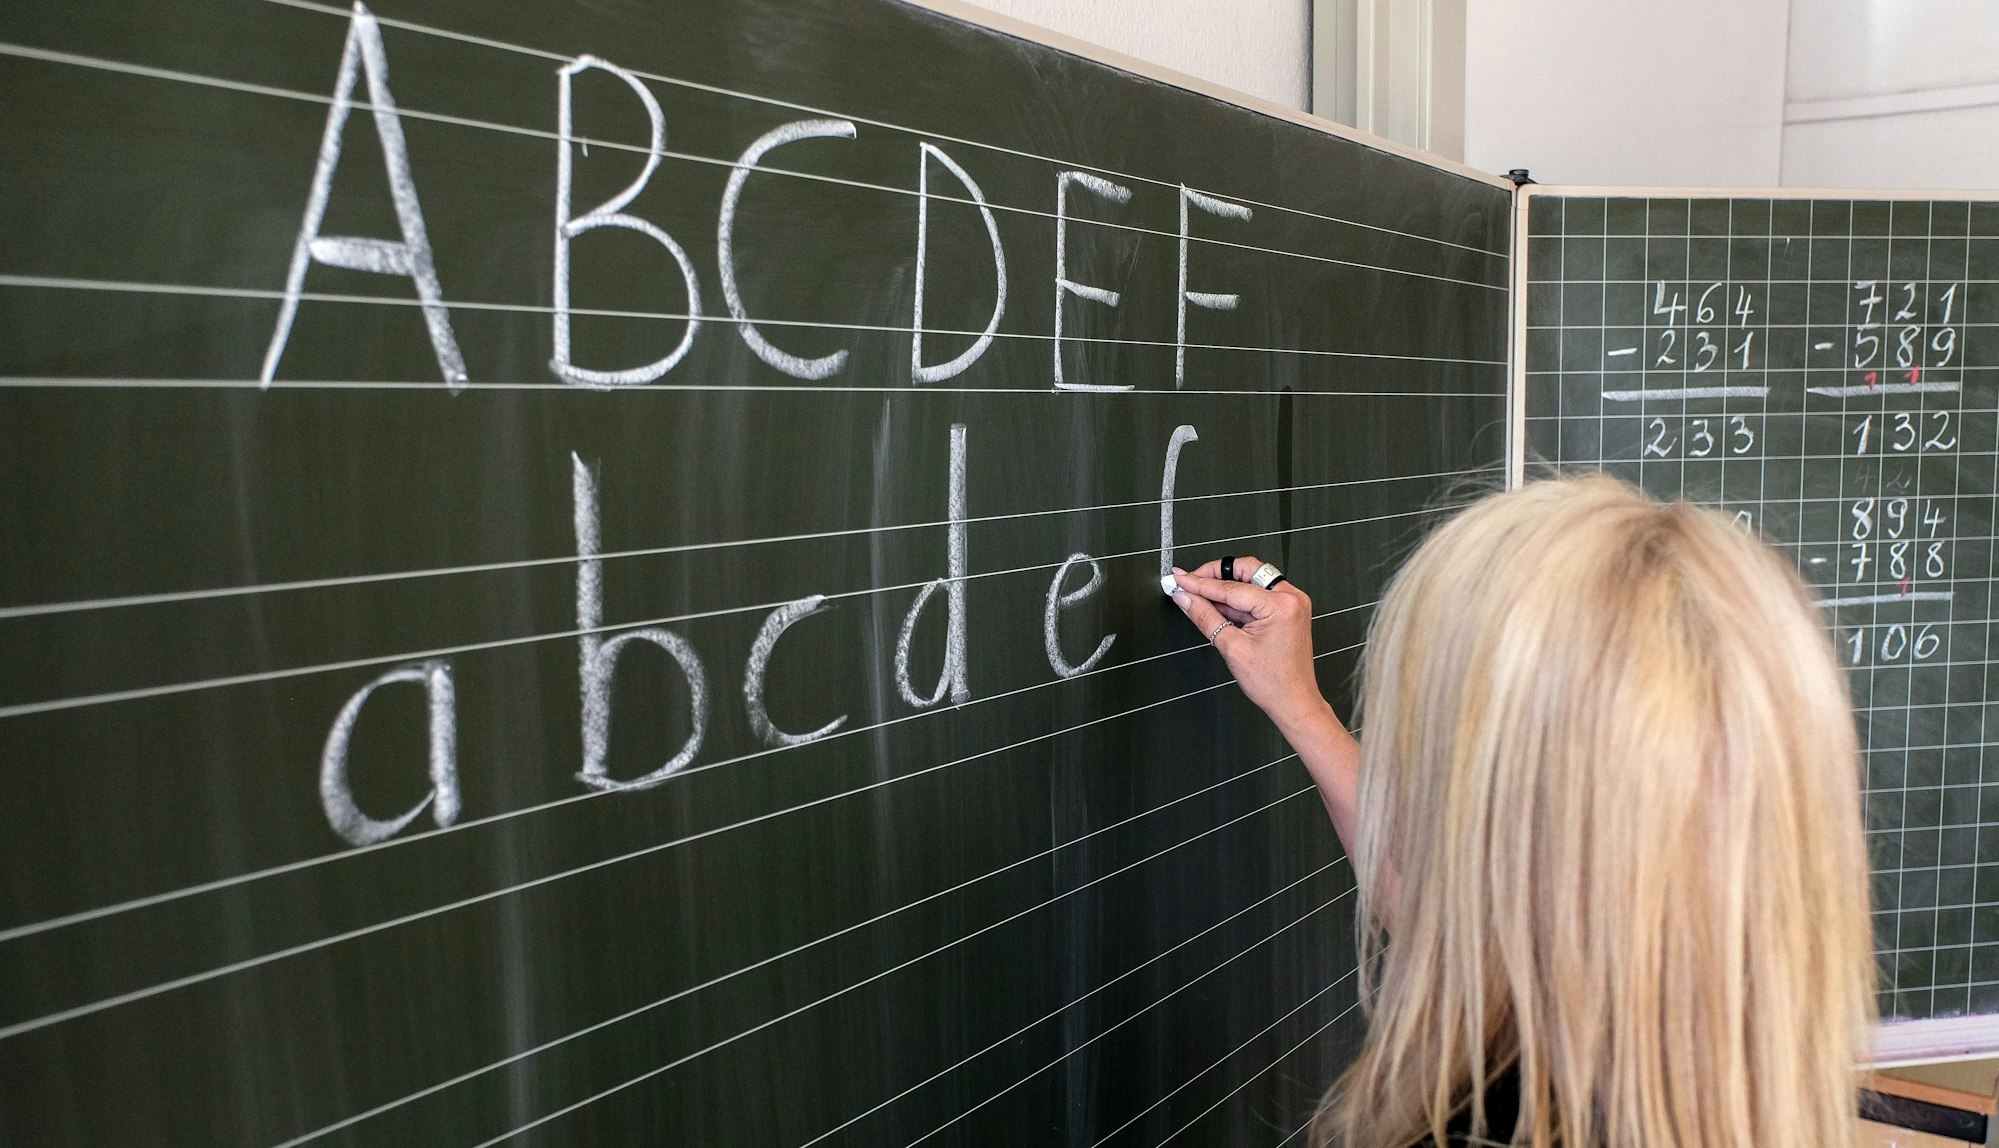 A B C D E F
a b c d e
464
- 231
233
721
- 589
1 1
132
894
- 788
1
106